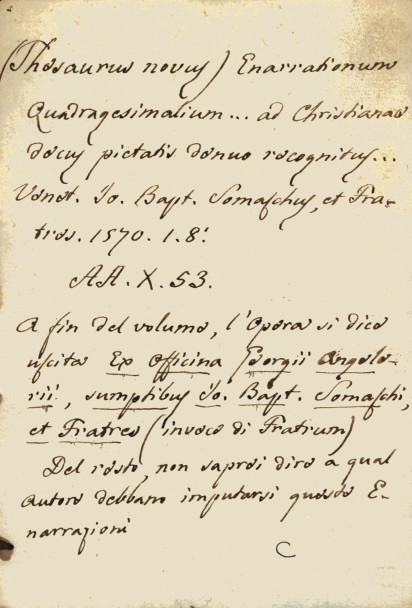 (Thesaurus novus) Enarrationum
Quadragesimalium... ad Christianae
decus pietatis denuo recognitus...
Venet. Io. Bapt. Somaschus, et Fra-
tres. 1570. 1. 8.
AA. X. 53.
A fin del volume, l'Opera si dice
uscita Ex Officina Georgii Angele-
rii, sumptibus Io. Bapt. Somaschi,
et Fratres (invece di Fratrum)
Del resto, non saprei dire a qual
autore debbano imputarsi queste E-
narrazioni
C